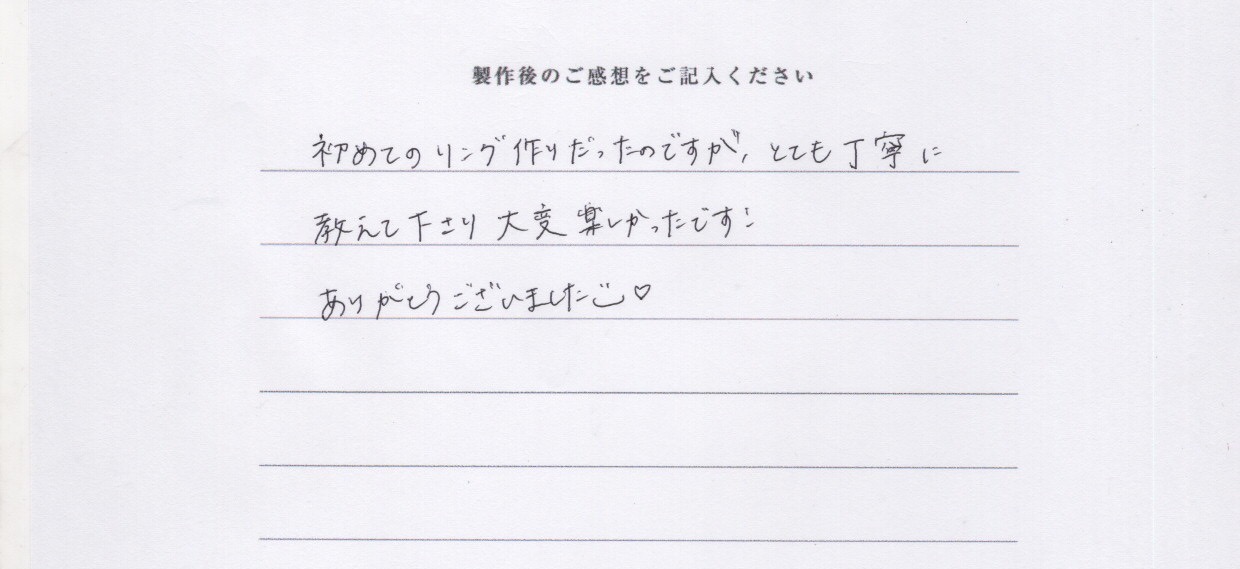 製作後のご感想をご記入ください
初めてのリング作りだったのですが、とても丁寧に
教えて下さり大変楽しかったです!
ありがとうございました☺♡